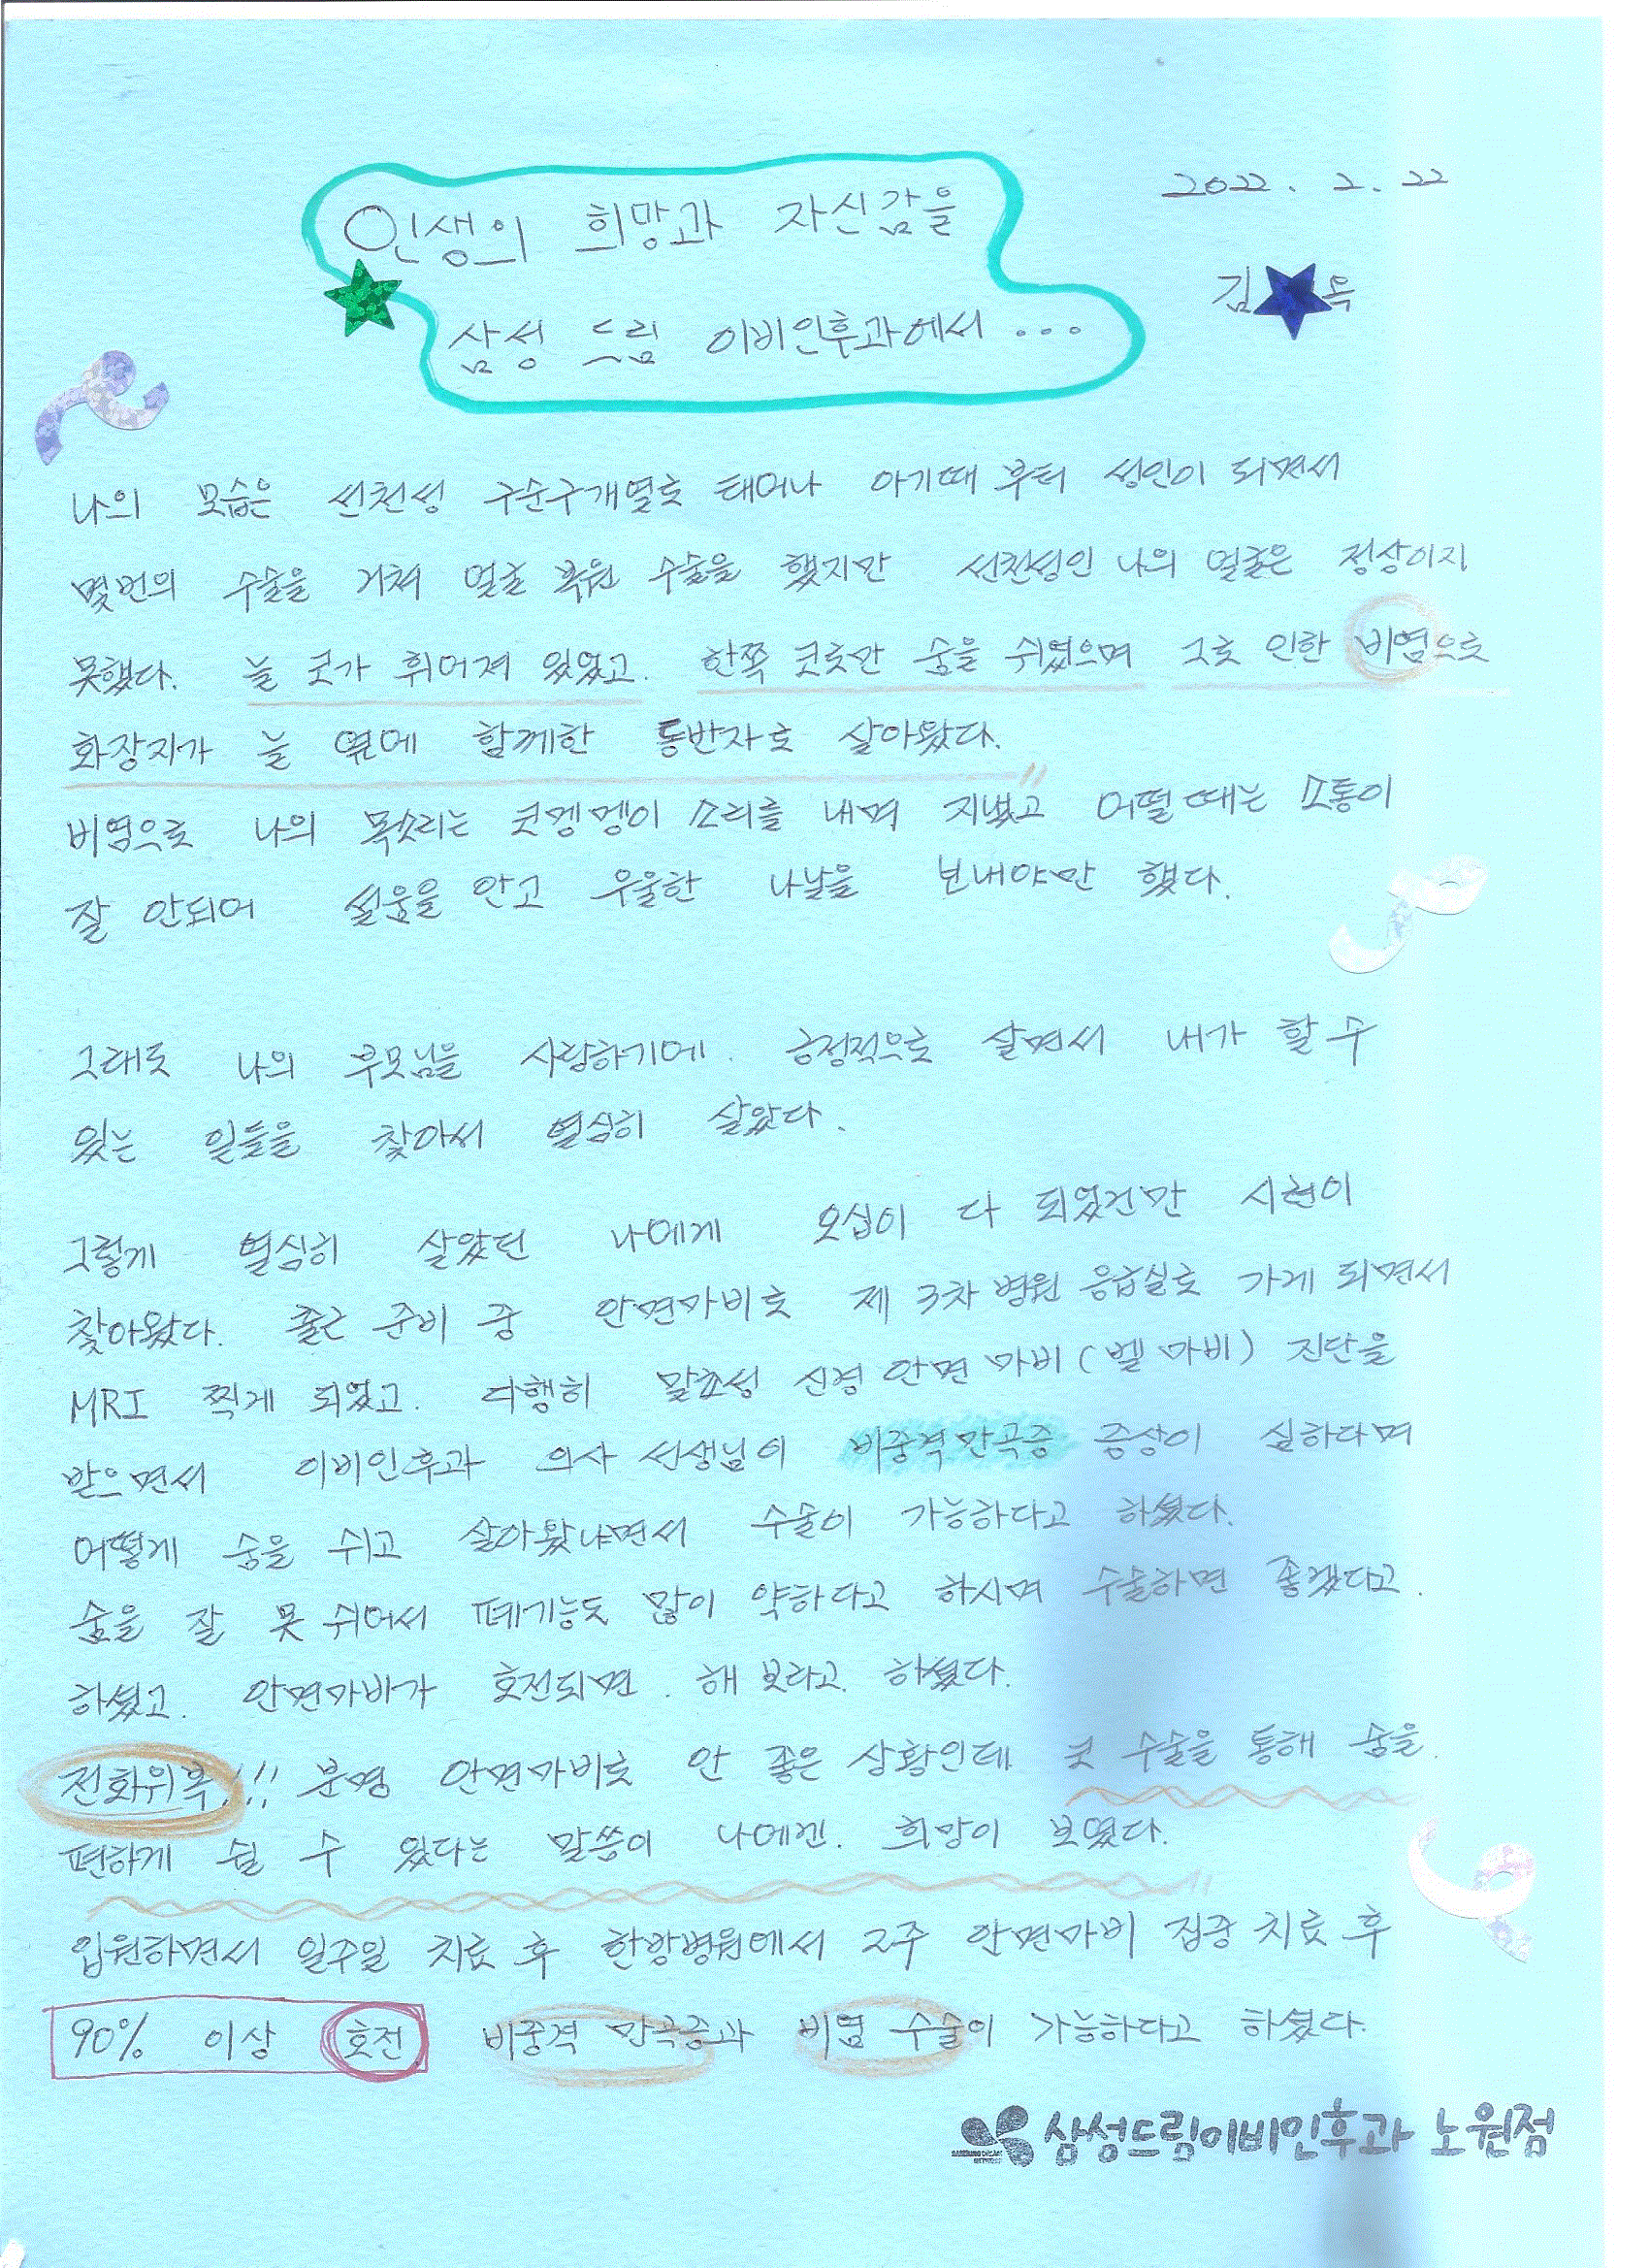 인생의 희망과 자신감을
2022. 2. 22
김 옥
삼성 드림 이비인후과에서...
나의 모습은 선천성 구순구개열로 태어나 아기때 부터 성인이 되면서
몇번의 수술을 거쳐 얼굴 복원 수술을 했지만 선천성인 나의 얼굴은 정상이지
못했다. 늘 코가 휘어져 있었고. 한쪽 코로만 숨을 쉬었으며 그로 인한 비염으로
화장지가 늘 옆에 함께한 동반자로 살아왔다.
비염으로 나의 목소리는 코멩멩이 소리를 내며 지냈고 어떨때는 소통이
잘 안되어 설움을 안고 우울한 나날을 보내야만 했다.
그래도 나의 부모님을 사랑하기에. 긍정적으로 살면서 내가 할 수
있는 일들을 찾아서 열심히 살았다.
그렇게 열심히 살았던 나에게 오십이 다 되었건만 시련이
찾아왔다. 출근 준비 중 안면마비로 제 3차 병원 응급실로 가게 되면서
MRI 찍게 되었고. 다행히 말초성 신경 안면 마비(벨 마비) 진단을
받으면서 이비인후과 의사 선생님이 비중격만곡증 증상이 심하다며
어떻게 숨을 쉬고 살아왔냐면서 수술이 가능하다고 하셨다.
숨을 잘 못 쉬어서 폐기능도 많이 약하다고 하시며 수술하면 좋겠다고.
하셨고. 안면마비가 호전되면. 해 보라고. 하셨다.
전화위복!!! 분명 안면마비로 안 좋은 상황인데 코 수술을 통해 숨을.
편하게 쉴 수 있다는 말씀이 나에겐. 희망이 보였다.
입원하면서 일주일 치료 후 한방병원에서 2주 안면마비 집중 치료 후
90% 이상 호전. 비중격 만곡증과 비염 수술이 가능하다고 하셨다.
삼성드림이비인후과 노원점